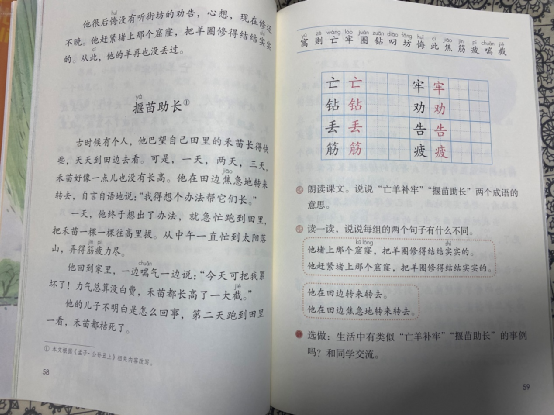 他很后悔没有听街坊的劝告，心想，现在修还
不晚。他赶紧堵上那个窟窿，把羊圈修得结结实实
的。从此，他的羊再也没丢过。
揠苗助长①
古时候有个人，他巴望自己田里的禾苗长得快
些，天天到田边去看。可是，一天，两天，三天，
禾苗好像一点儿也没有长高。他在田边焦急地转来
转去，自言自语地说：“我得想个办法帮它们长。”
一天，他终于想出了办法，就急忙跑到田里，
把禾苗一棵一棵往高里拔。从中午一直忙到太阳落
山，弄得筋疲力尽。
他回到家里，一边喘气一边说：“今天可把我累
坏了！力气总算没白费，禾苗都长高了一大截。”
他的儿子不明白是怎么回事，第二天跑到田里
一看，禾苗都枯死了。
① 本文根据《孟子·公孙丑上》相关内容改写。
58
yù zé wáng láo juàn zuān diāo fāng huǐ cǐ jiāo jīn pí chuǎn jié
寓则亡牢圈钻叼坊悔此焦筋疲喘截
亡亡 牢牢
钻钻 劝劝
丢丢 告告
筋筋 疲疲
朗读课文。说说“亡羊补牢”“揠苗助长”两个成语的
意思。
读一读，说说每组的两个句子有什么不同。
kū long
他堵上那个窟窿，把羊圈修得结结实实的。
他赶紧堵上那个窟窿，把羊圈修得结结实实的。
他在田边转来转去。
他在田边焦急地转来转去。
选做：生活中有类似“亡羊补牢”“揠苗助长”的事例
吗？和同学交流。
59